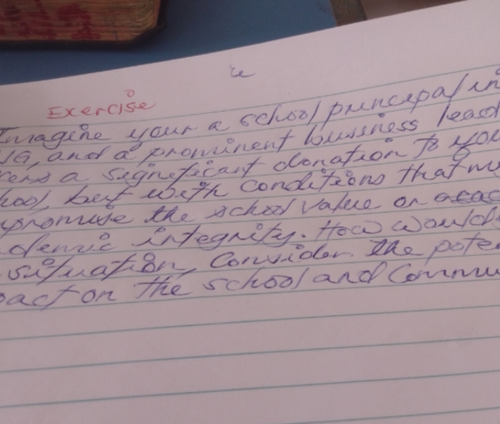 Exercise
Imagine your a school principal in
and a prominent business lead
a significant donation to you
but with conditions that
the school value or acac
integrity. How would
situation, Consider the pote
on the school and Commu